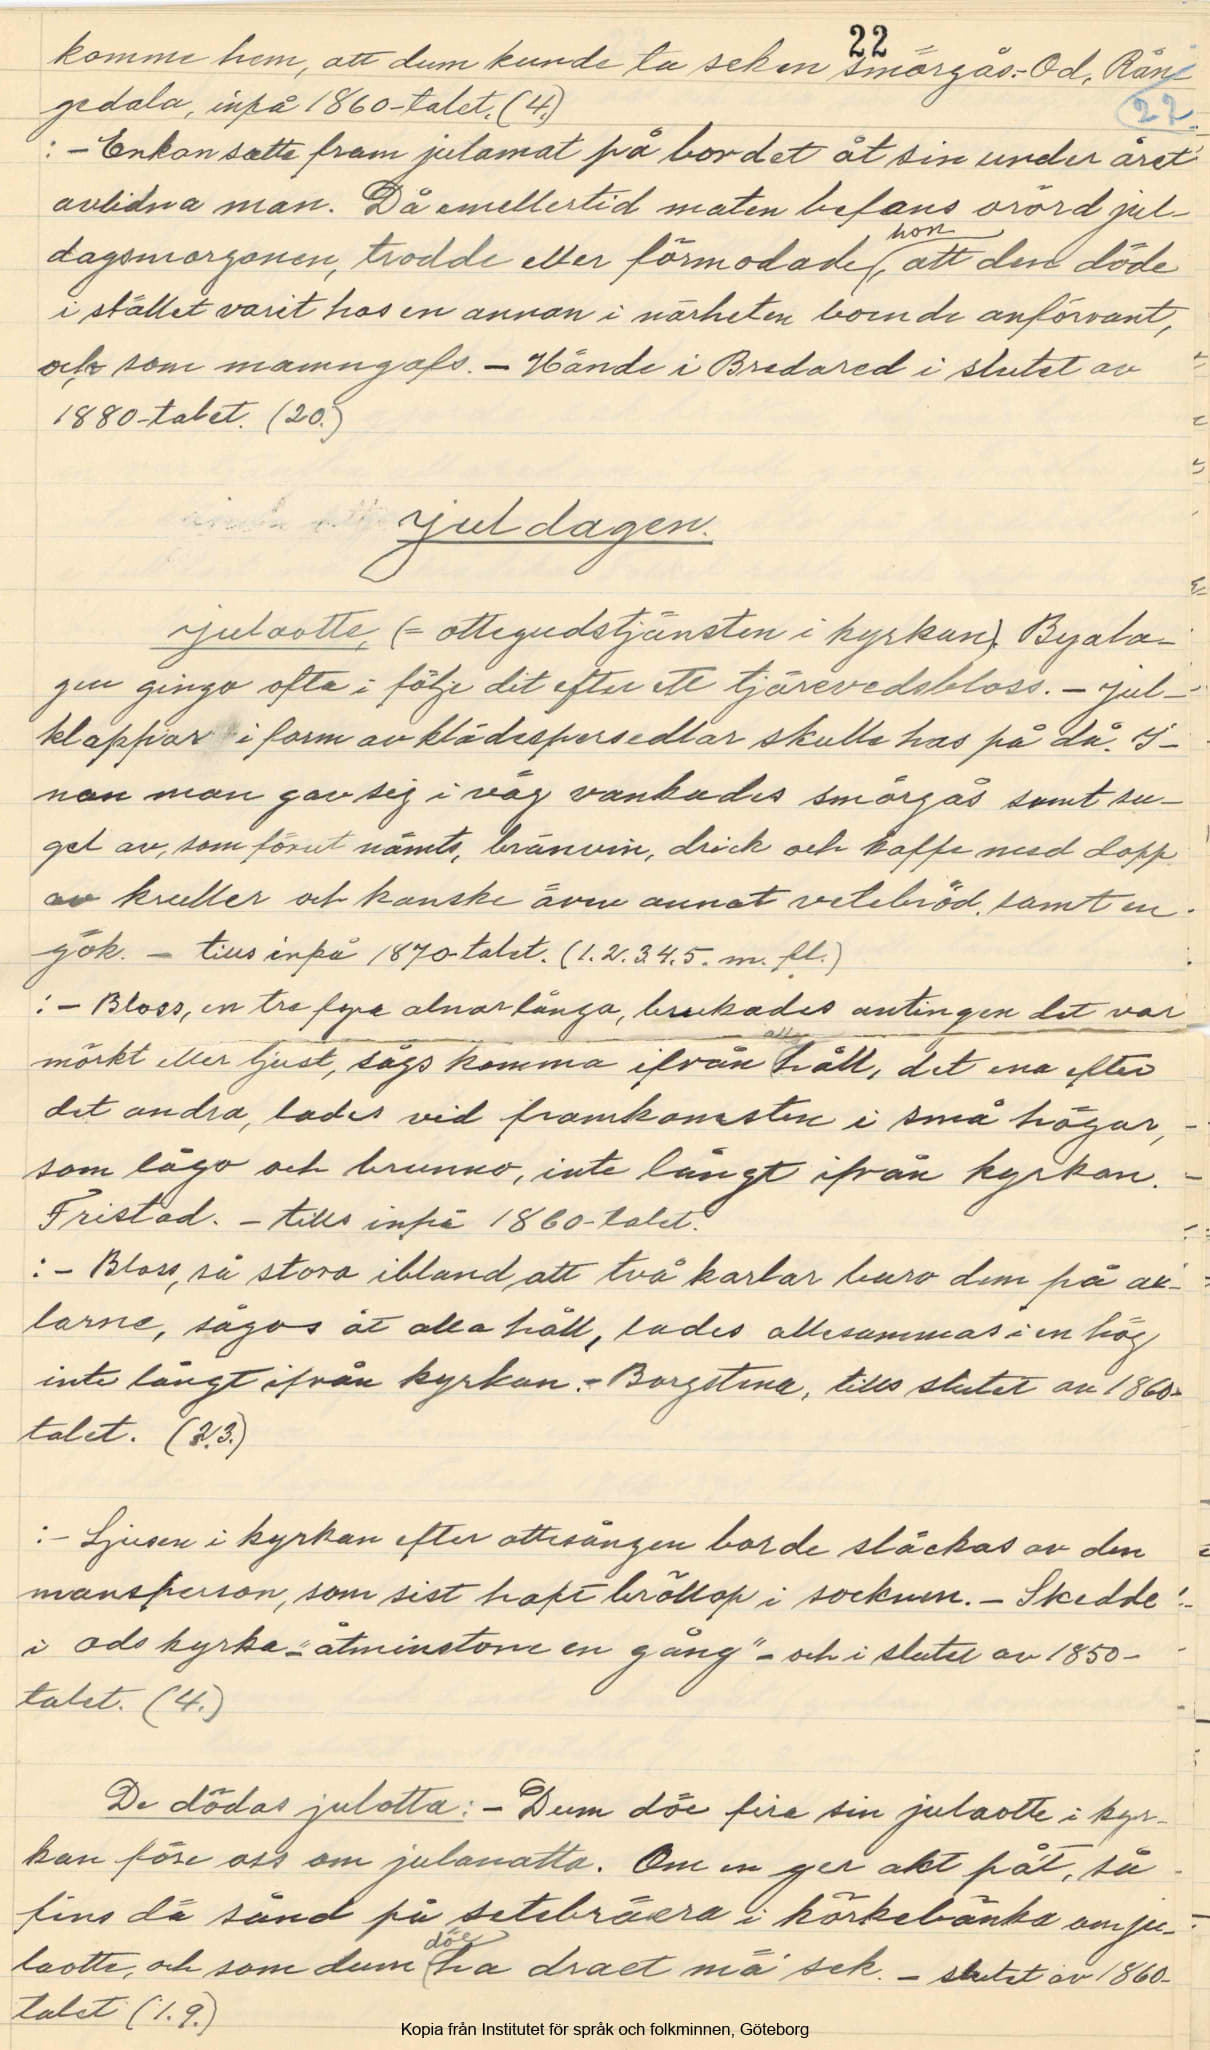 22
komme hem, att dum kunde ta sek en smörgås.- Od, Rån-
gedala, inpå 1860-talet. (4.)
22.
:- Enkan satte fram julamat på bordet åt sin under året
avlidna man. Då emellertid maten befans orörd jul-
dagsmorgonen, trodde eller förmodade, hon att den döde
i stället varit hos en annan i närheten boende anförvant,
och som mamngafs. - Hände i Bredared i slutet av
1880-talet. (20.)
Juldagen.
Julaotte, (= ottegudstjänsten i kyrkan). Byala-
gen gingo ofta i följe dit efter ett tjärevedsbloss. - Jul-
klappar i form av klädespersedlar skulle has på då. I-
nan man gav sig i väg vankades smörgås samt su-
get av, som förut nämts, bränvin, drick och kaffe med dopp
av kruller och kanske även annat vetebröd, samt en
gök. - tills inpå 1870-talet. (1.2.3.4.5. m. fl.)
:- Bloss, en tre fyra alnar långa, brukades antingen det var
mörkt eller ljust, sågs komma ifrån alla håll, det ena efter
det andra, lades vid framkomsten i små högar,
som lågo och brunno, inte långt ifrån kyrkan.
Fristad. - tills inpå 1860-talet.
:- Bloss, så stora ibland, att två karlar buro dem på ax-
larne, sågos åt alla håll, lades allesammas i en hög
inte långt ifrån kyrkan. - Borgstena, tills slutet av 1860-
talet. (2.3.)
:- Ljusen i kyrkan efter ottesången borde släckas av den
mansperson, som sist haft bröllop i socknen. - Skedde
i Ods kyrka - "åtminstone en gång" - och i slutet av 1850-
talet. (4.)
De dödas julotta: - Dum döe fira sin julaotte i kyr-
kan före oss om julanatta. Om en ger akt påt, så
fins dä sånd på setebräera i körkebänka om ju-
laotte, och som dum döe ha draet mä sek. - slutet av 1860-
talet (1.9.)
Kopia från Institutet för språk och folkminnen, Göteborg